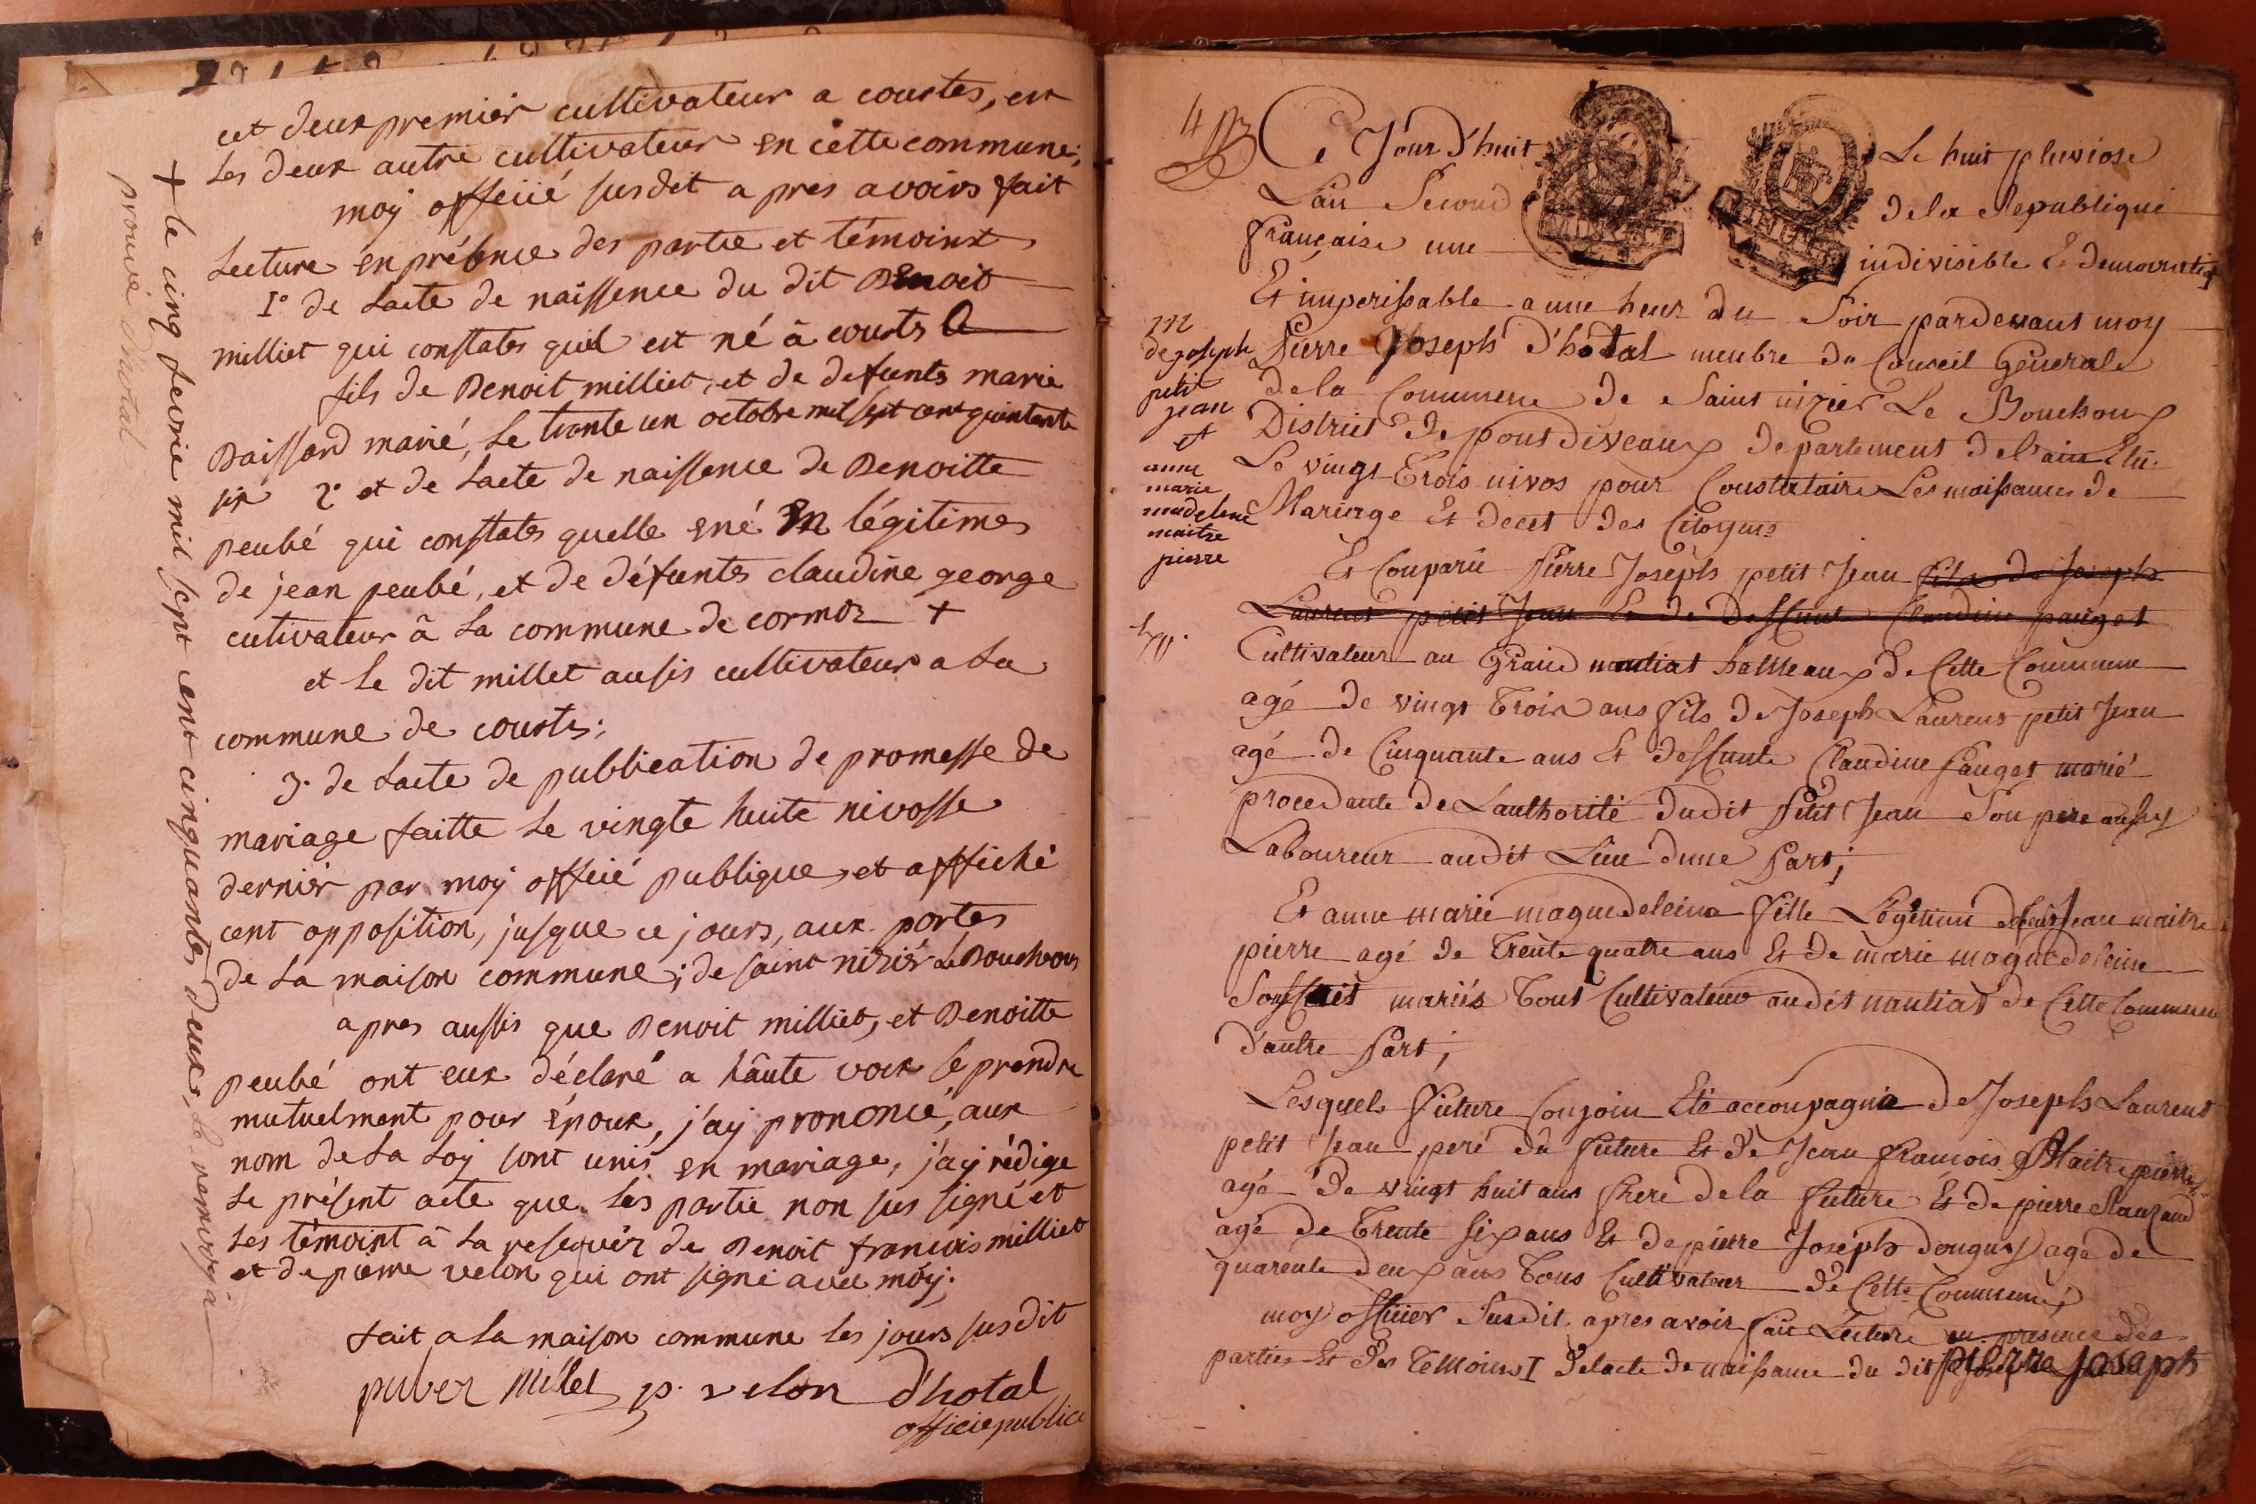 cet deux premier cultivateur a courtes, eux
les deux autre cultivateur en cette commune;
moÿ officié susdit a pres avoirs fait
lecture en présence des partie et témoinx
1° de lacte de naissence du dit Benoit
milliet qui constates quil est né à courts
fils de Benoit milliet, et de defunts marie
Baissard marié, le trante un octobre mil sept cent quintante
six 2° et de lacte de naissence de Benoitte
peubé qui constates quelle e né en légitimes
de jean peubé, et de défuntes claudine george
cutivateur à la commune de cormoz +
et le dit millet ausis cultivateur a la
commune de courts;
3. de lacte de publication de promesse de
mariage faitte le vingte huite nivosse
dernier par moÿ officié publique, et affiché
cent opposition, jusque ce jours, aux portes
de la maison commune; de saint nizier le Bouchoux
apres aussis que Benoit milliet, et Benoitte
peubé ont eux déclaré a hâute voix se prendre
mutuelment pour époux, j'aÿ prononcé, aux
nom de la loÿ sont unis en mariage, j'aÿ rédige
le présent acte que les partie non sus signé et
les témoint à la reservér de Benoit francois milliet
et de pierre velon qui ont signé avec moÿ;
fait a la maison commune les jours susdit
puvez Milet p. velon d'hotal
officiepublic
+ le cinq fevrie mil sept cent cinquantes deux, le renvoÿ à
prouvé Dhotal
4
Ce Jour d'huit Le huit pluviose
L'an Second de la Republique
française une indivisible & democratiq
Et imperissable a une heur du Soir pardevant moy
Pierre Joseph D'hotal menbre du Conseil Général
de la Commune de Saint nizier Le Bouchoux
District de pont diveaux departement de l'ain Elu
Le vingt Trois nivos pour Constataire Les naissances
Mariage Et deces des Citoyens
m
de joseph
petit
jean
et
anne
marie
madelene
maitre
pierre
Et Conparu Pierre Joseph petit Jean fils de Joseph
Laurent petit Jean Et de deffunte Claudine pauget
Cultivateur au Grand nantiat hameaux de Cette Commune
agé de vingt Trois ans fils de Joseph Laurent petit Jean
agé de Cinquante ans Et deffunte Claudine Pauget marié
procedante de Lauthorité dudit Petit Jean Son pere aussy
Laboureur audit Lieu dune Part;
Et anne marie maguedeleina fille Légitime Jean maitre
pierre agé de Trente quatre ans Et de marie maguedeleine
mariés Tout Cultivateur audit nantiat de Cette Commune
d'autre Part;
Lesquels future Conjoin Eté acconpagnia de Joseph Laurent
petit Jean peré du future Et de Jean francois Maitre pierre
agé de vingt huit ans frere de la future Et de pierre
agé de Trente six ans Et de pierre Joseph agé de
quarente deux ans Tous Cultivateur de Cette Commune
moy officier Susdit apres avoir fait Lecture en presence des
parties Et des Témoins I delacte de naissance du dit pierre joseph